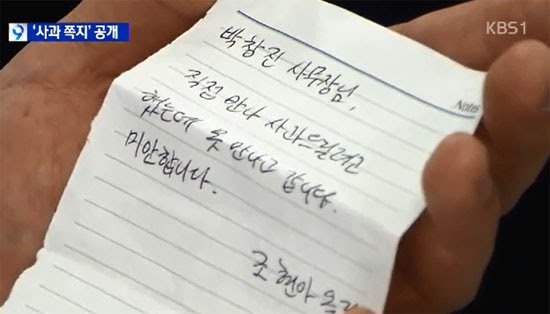 9 '사과 쪽지' 공개
KBS1
Notes
박창진 사무장님,
직접 만나 사과드릴려고
했는데 못 만나고 갑니다.
미안합니다.
조현아 올림